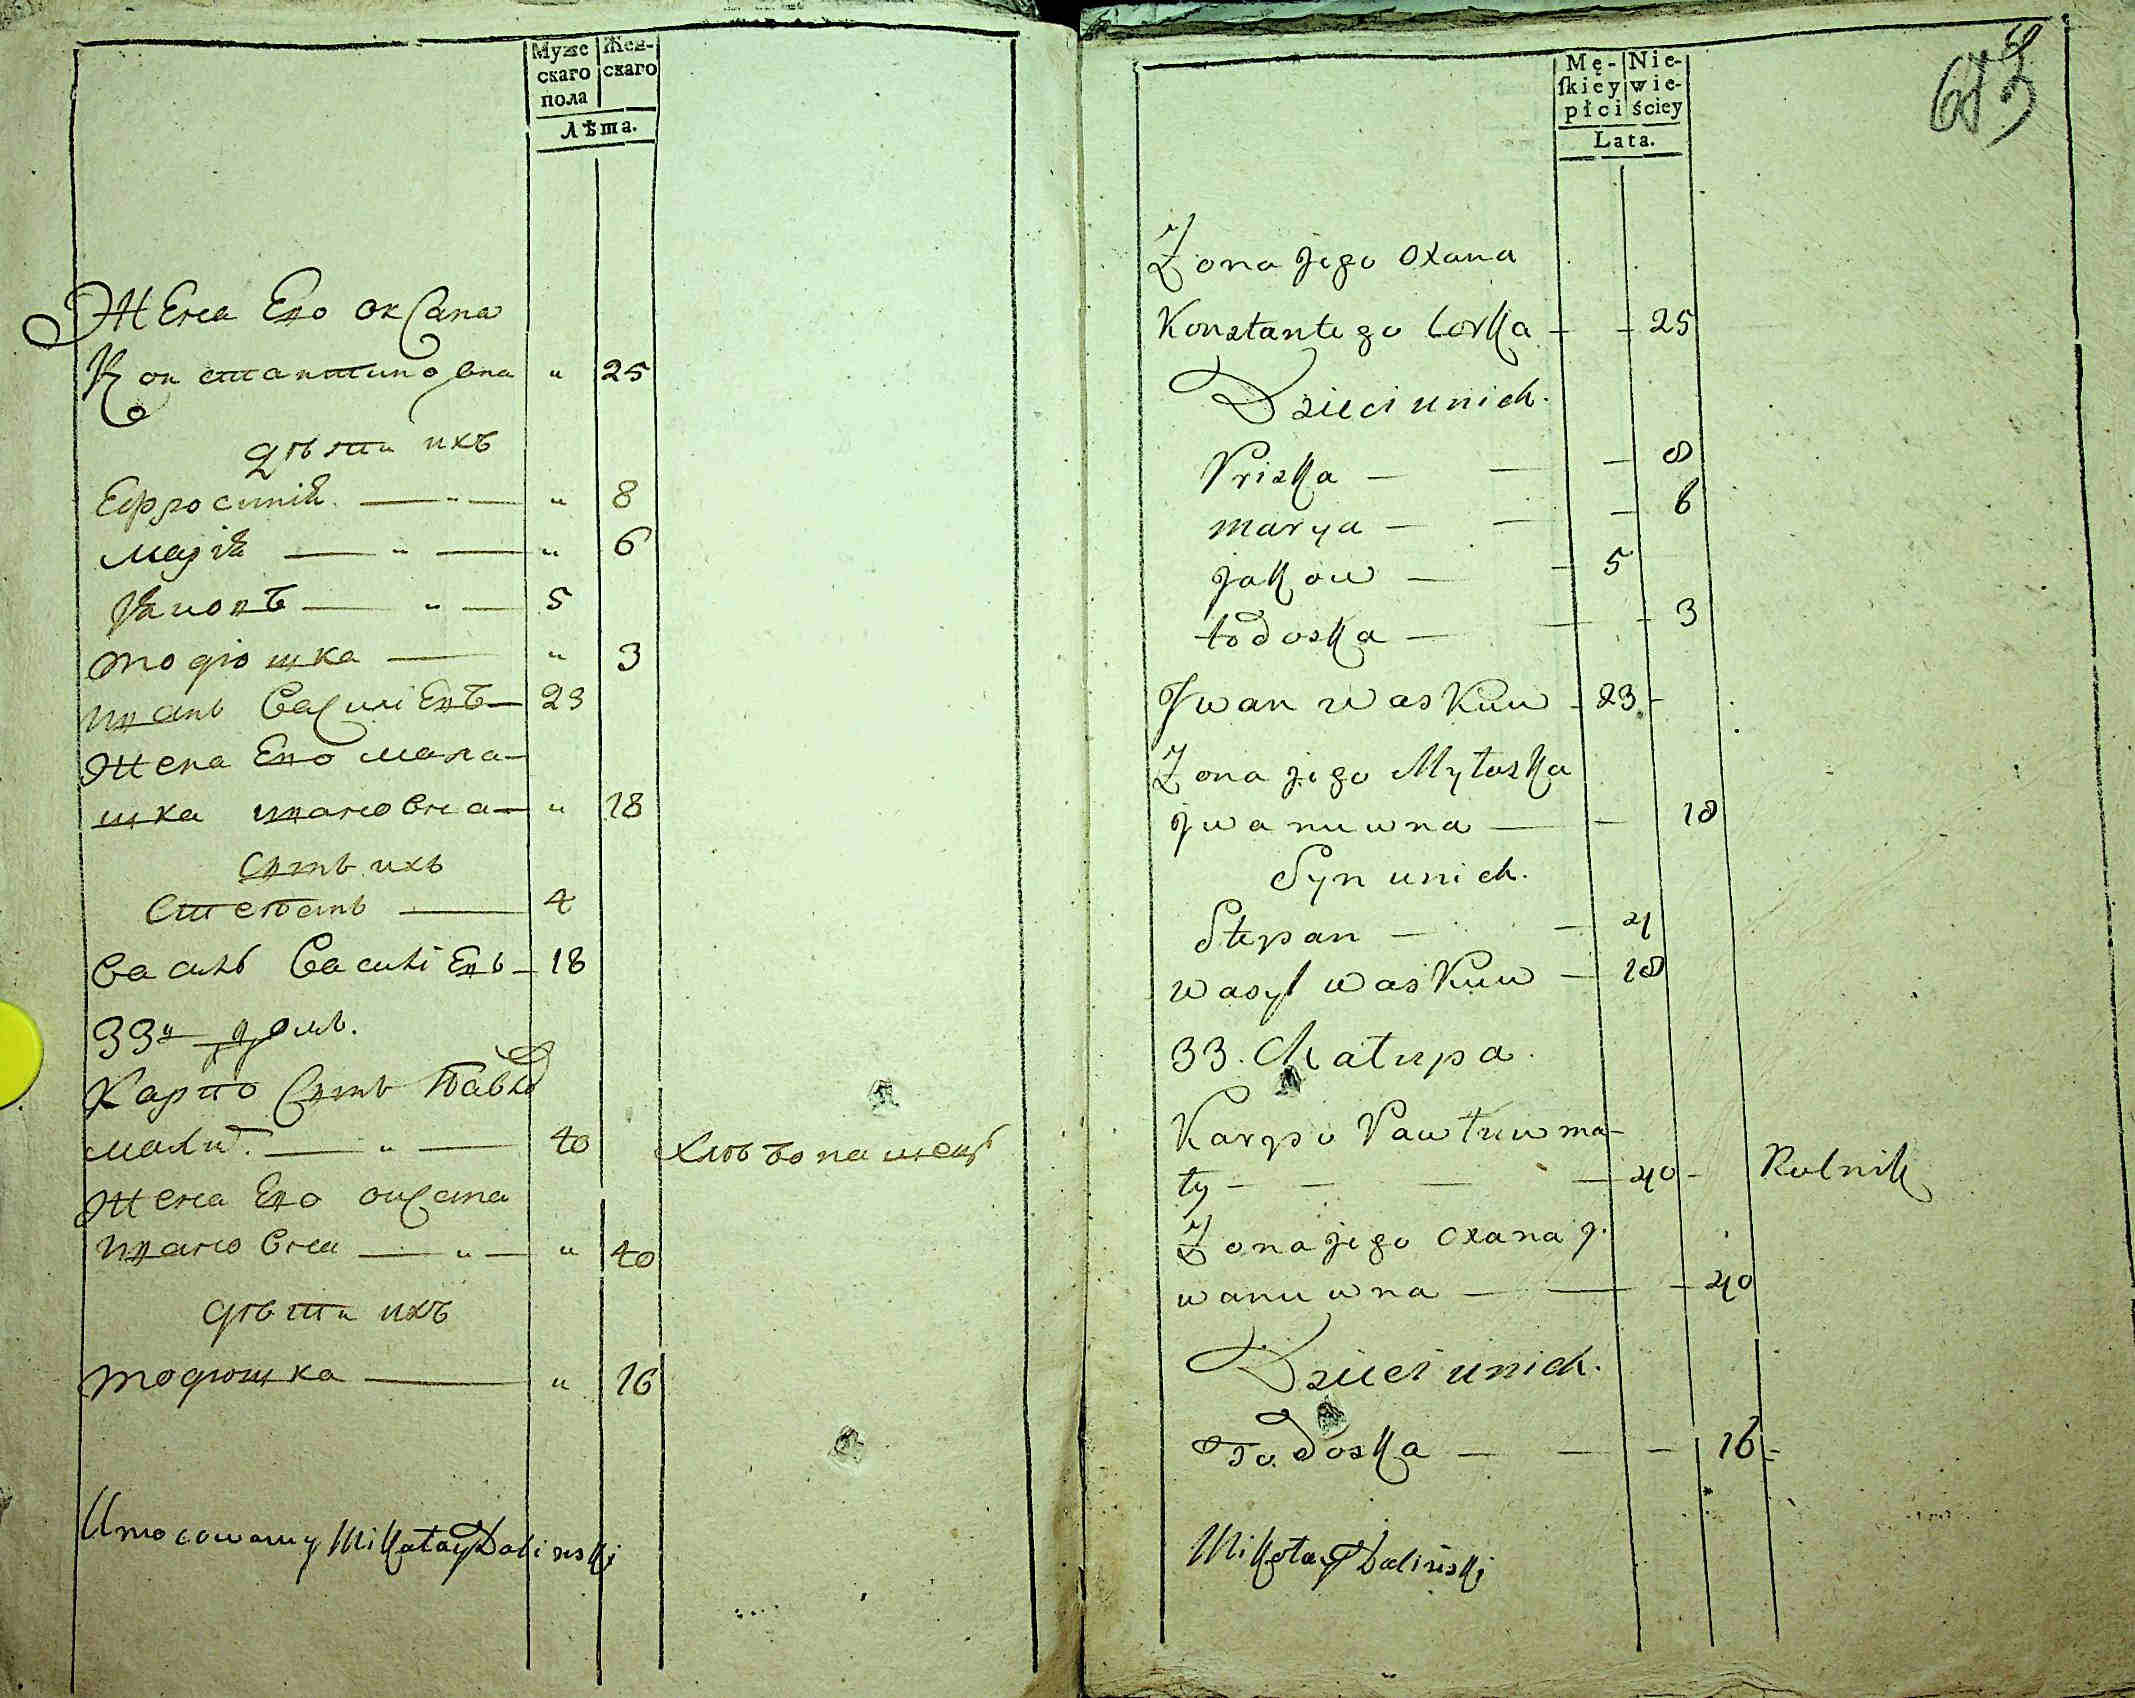 Муже
скаго
пола
Жен-
скаго
Лѣта.
Жена Его оксана
Константиновна " 25
дѣти ихъ
Ефросиніѧ — " — " 8
Маріѧ — " — " 6
Ѧковъ — " — 5
тодюшка — " 3
иванъ Василіевъ — 23
Жена Его мала-
шка ивановна — " 18
Сынъ ихъ
Степанъ — 4
василь Василіевъ — 18
33й домъ.
Карпо Сынъ Павло
малы. — " — 40 хлѣбопашецъ
Жена Его оксана
ивановна — " — " 40
дѣти ихъ
тодюшка — " 16
Umocowany Mikołay Daliński
Mę-
ſkiey
płci
Nie-
wie-
ściey
Lata.
Żona jego Oxana
Konstantego corka - - 25
Dzieci u nich.
Priska — — — 8
Marya — — — 6
Jakow — — 5
todoska — — - 3
Jwan waskuw - 23 -
Żona jego Małaska
Jwanuwna — — 18
Syn u nich.
Stepan — — 4
wasyl waskuw — 18
33. Chałupa.
Karpo Pawłuw ma-
ły — — — — 40 - Rolnik
Żona jego Oxana J.
wanuwna — — — 40
Dzieci u nich.
Todoska — — — 16 -
Mikołay Daliński